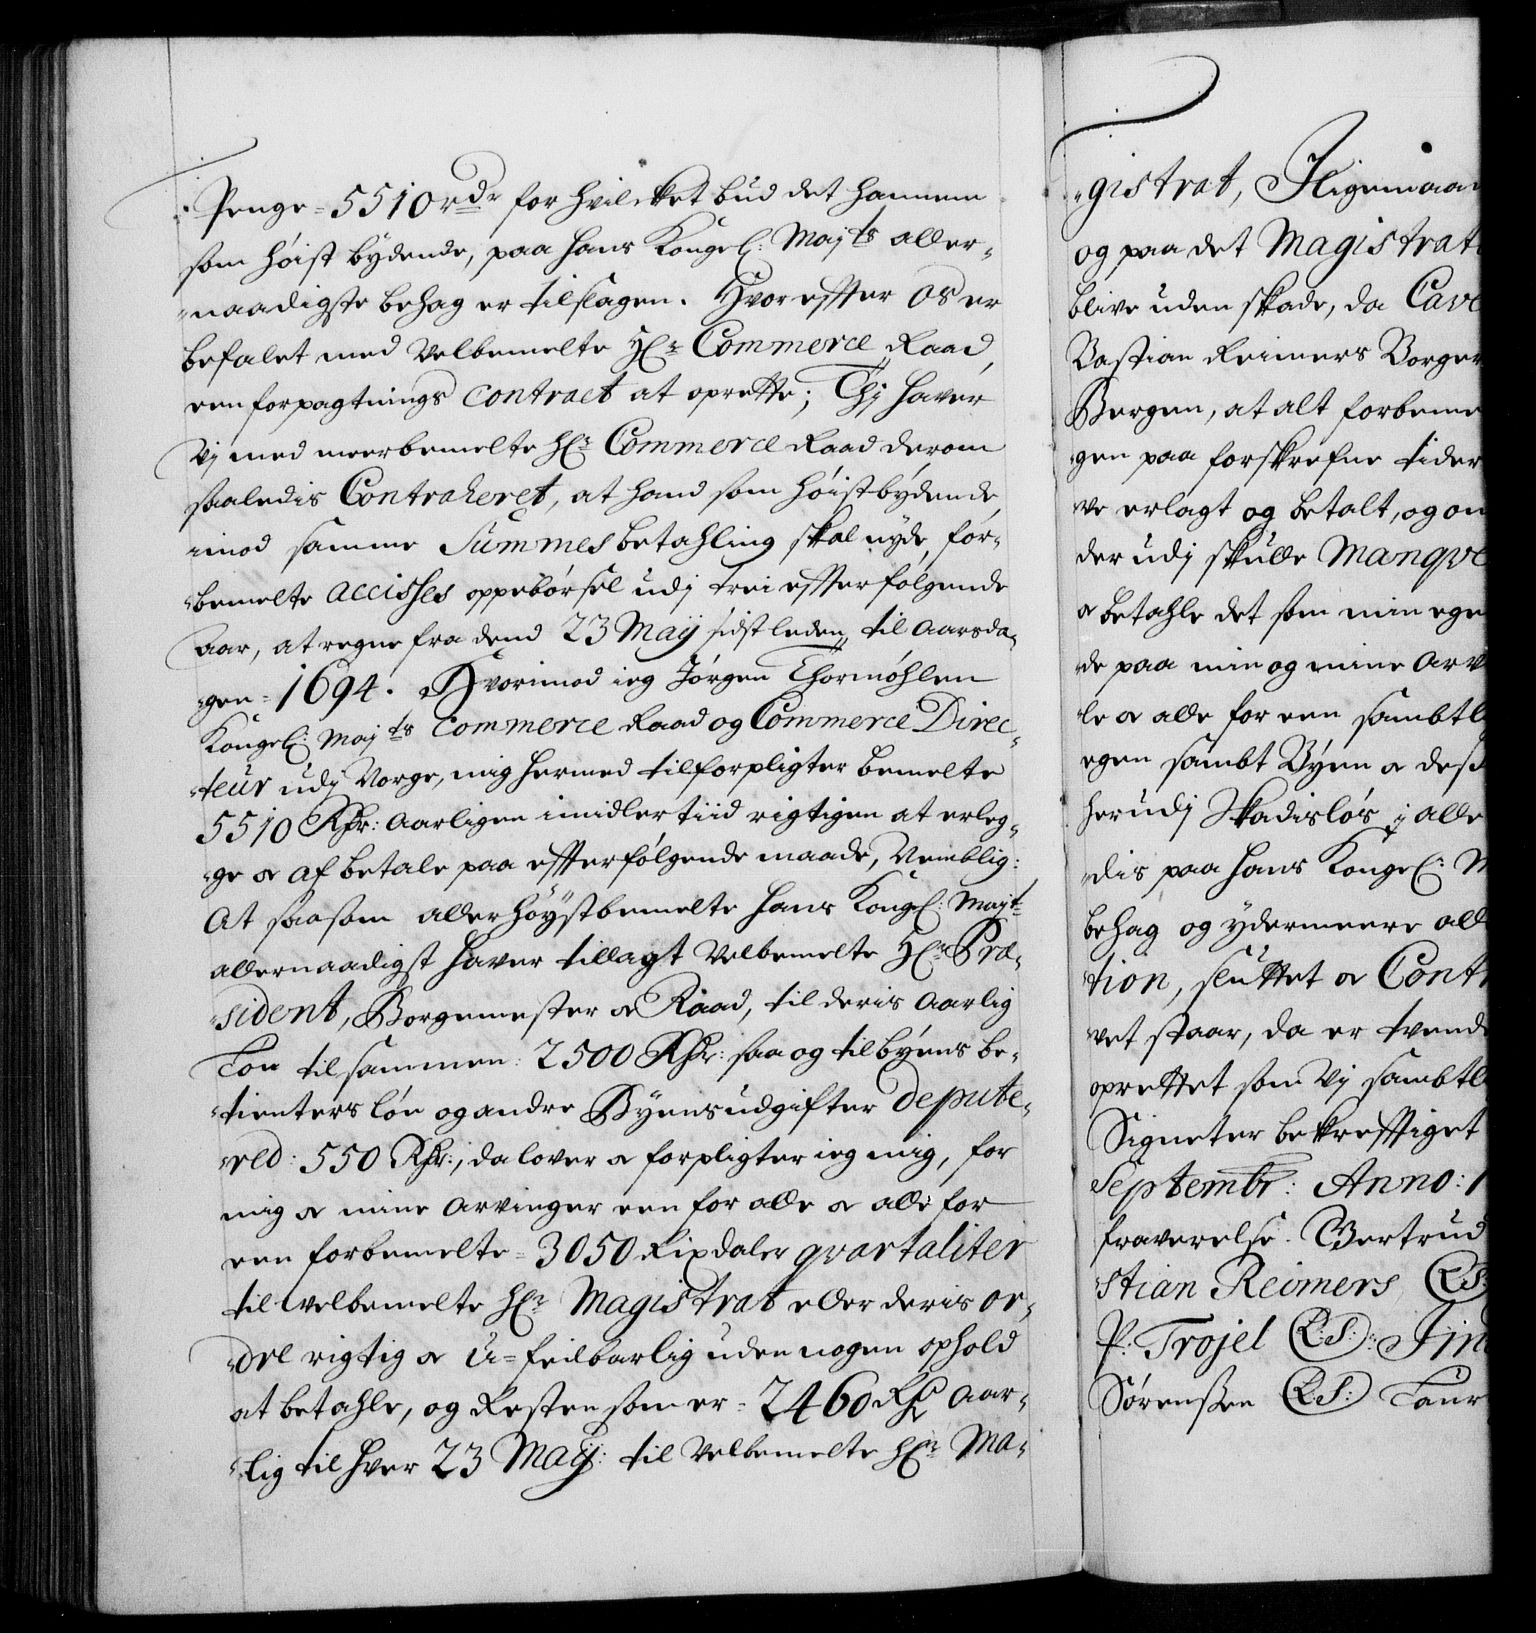 Penge = 5510 rdr for hvilcket bud det hannem
som høist bydende, paa hans Kongel: Majts aller-
naadigste behag er tilslagen. Hvoreffter os er
befalet med Velbemelte Hr: Commerce Raad,
een forpagtnings Contract at oprette; Thj haver
Vj med meerbemelte Hr: Commerce Raad derom
saaledis Contraheret, at hand som høistbydende,
imod samme Summes betahling skal nyde, for-
bemelte Accisses oppebørsel udj trei effterfølgende
Aar, at regne fra dend 23 Maij sidstleden, til Aarsda-
gen = 1694. Hvorimod ieg Jørgen Thormøhlen
Kongel: Majts Commerce Raad og Commerce Direc-
teur udj Norge, mig hermed tilforpligter bemelte
5510 Rdr: Aarligen imidlertiid rigtigen at erleg-
ge & af betale paa effterfølgende maade, Nemblig:
At saasom allerhøystbemelte hans Kongl: Mayt:
allernaadigst haver tillagt Velbemelte Hr: Præ-
sident, Borgemester & Raad, til deris Aarlig
Løn tilsammen: 2500 Rdr: saa og til byens be-
tienters løn og andre Byens udgifter depute-
red: 550 Rdr:, da lover & forpligter ieg mig, for
mig & mine Arvinger een for alle & alle for
een forbemelte = 3050 Rixdaler qvartaliter
til velbemelte Hr: Magistrat eller deris or-
dre rigtig & U=feilbarlig uden nogen ophold
at betahle, og Resten som er = 2460 Rdr Aar-
lig til hver 23 Maij: til Velbemelte Hr: Ma-
gistrat,
og paa det Magistrat
blive uden skade, da
Bastian Reimers Borger
Bergen, at alt forbeme
gen paa forskrefne tider
ve erlagt og betalt, og om
der udj skulle Manqve
& betahle det som min ege
de paa min og mine Arv
le & alle for een sambtl
egen sambt Byen & dess
herudj Skadisløs j alle
dis paa hans Kongel: M
behag og ydermeere all
tion, sluttet & Contr
vet staar, da er tvende
oprettet som Vj sambtl
Signeter bekrefftiget
Septembr: Anno: 1
fraverelse. Gertrud
stian Reimers (L:S:
P: Trojel (L:S:):
Sørenssen (L:S:) Laur